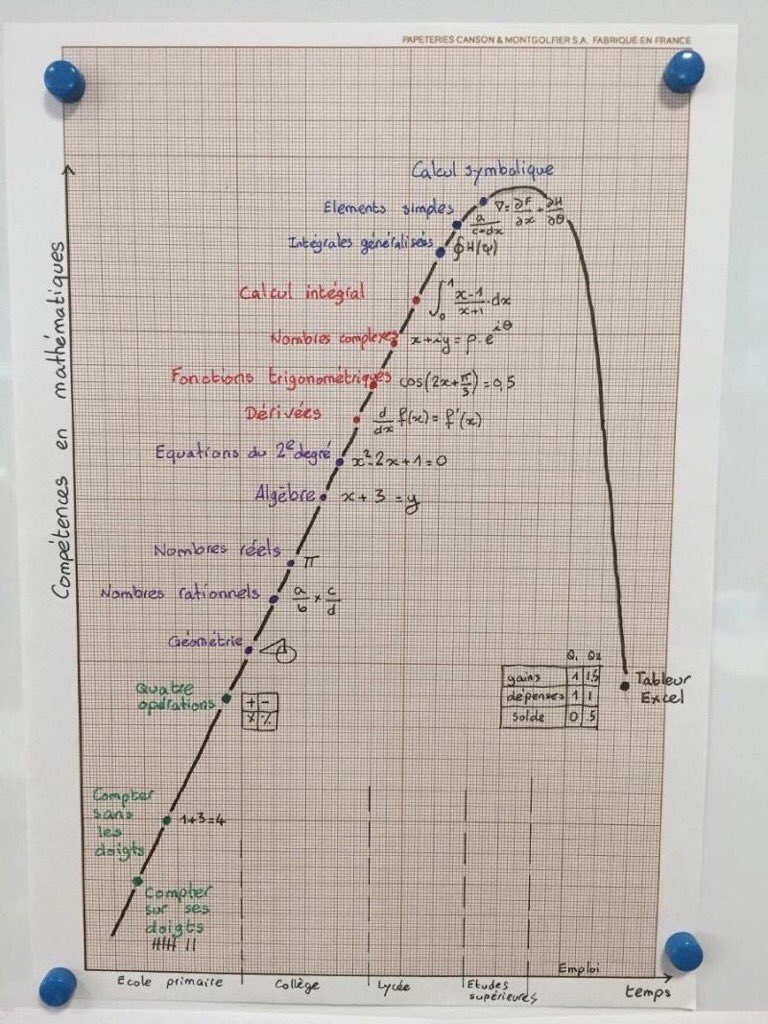 PAPETERIES CANSON & MONTGOLFIER S.A. FABRIQUÉ EN FRANCE
Compétences en mathématiques
Calcul symbolique
∇ = ∂F/∂x + ∂H/∂θ
Elements simples
a/(c+dx)
Intégrales généralisées
∮H(φ)
Calcul intégral
∫₀¹ (x-1)/(x+1) · dx
Nombres complexes
x+iy = ρ·e^iθ
Fonctions trigonométriques
cos(2x+π/3) = 0,5
Dérivées
d/dx f(x) = f'(x)
Equations du 2e degré
x²-2x+1=0
Algèbre
x+3=y
Nombres réels
π
Nombres rationnels
a/b × c/d
Géométrie
Quatre
opérations
+ -
× %
Q1 Q2
gains 1 1,5
dépenses 1 1
solde 0 .5
Tableur
Excel
Compter
sans
les
doigts
1+3=4
Compter
sur ses
doigts
Ecole primaire
Collège
Lycée
Etudes
supérieures
Emploi
temps